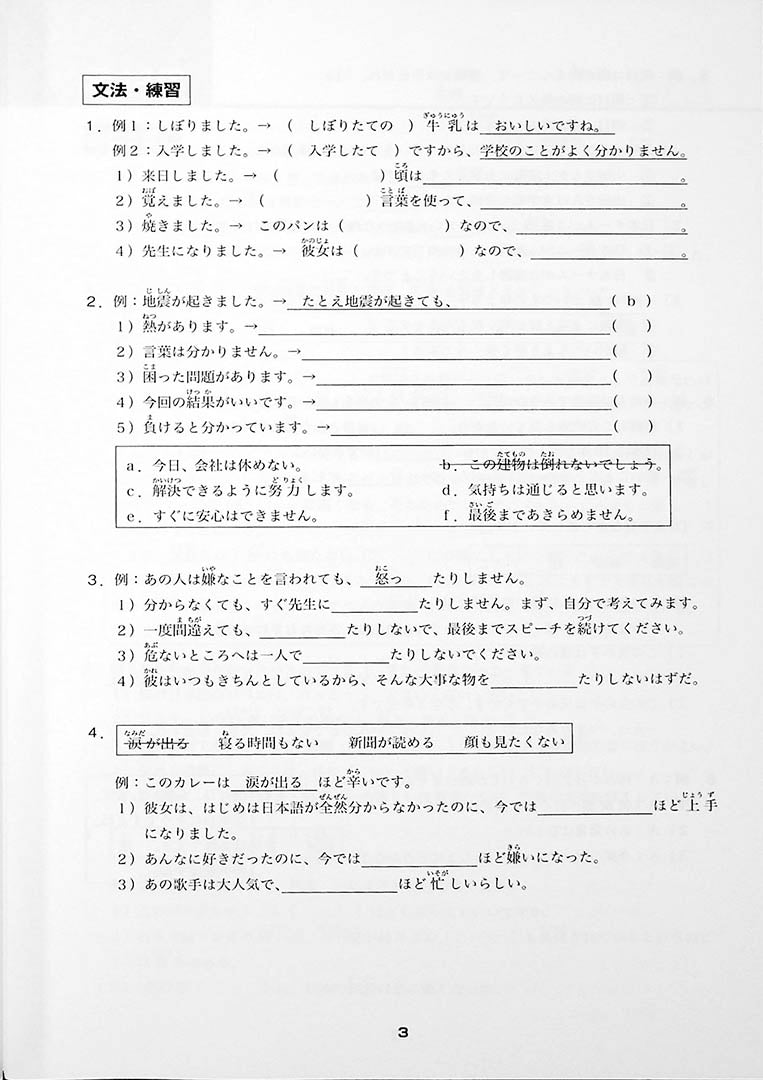 文法・練習
1．例1：しぼりました。→ （ しぼりたての ）牛乳は おいしいですね。
例2：入学しました。→ （ 入学したて ）ですから、学校のことがよく分かりません。
1）来日しました。→ （　　　　　）頃は　　　　　　　　　　。
2）覚えました。→ （　　　　　）言葉を使って、　　　　　　　　　　。
3）焼きました。→ このパンは（　　　　　）なので、　　　　　　　　　　。
4）先生になりました。→ 彼女は（　　　　　）なので、　　　　　　　　　　。
2．例：地震が起きました。→ たとえ地震が起きても、　　　　　（ b ）
1）熱があります。→＿＿＿＿＿＿＿＿（　　）
2）言葉は分かりません。→＿＿＿＿＿＿＿＿（　　）
3）困った問題があります。→＿＿＿＿＿＿＿＿（　　）
4）今回の結果がいいです。→＿＿＿＿＿＿＿＿（　　）
5）負けると分かっています。→＿＿＿＿＿＿＿＿（　　）
a．今日、会社は休めない。　b．この建物は倒れないでしょう。
c．解決できるように努力します。　d．気持ちは通じると思います。
e．すぐに安心はできません。　f．最後まであきらめません。
3．例：あの人は嫌なことを言われても、 怒っ たりしません。
1）分からなくても、すぐ先生に＿＿＿＿＿たりしません。まず、自分で考えてみます。
2）一度間違えても、＿＿＿＿＿たりしないで、最後までスピーチを続けてください。
3）危ないところへは一人で＿＿＿＿＿たりしないでください。
4）彼はいつもきちんとしているから、そんな大事な物を＿＿＿＿＿たりしないはずだ。
4．涙が出る　寝る時間もない　新聞が読める　顔も見たくない
例：このカレーは 涙が出る ほど辛いです。
1）彼女は、はじめは日本語が全然分からなかったのに、今では＿＿＿＿＿＿＿ほど上手
になりました。
2）あんなに好きだったのに、今では＿＿＿＿＿＿＿ほど嫌いになった。
3）あの歌手は大人気で、＿＿＿＿＿＿＿ほど忙しいらしい。
3